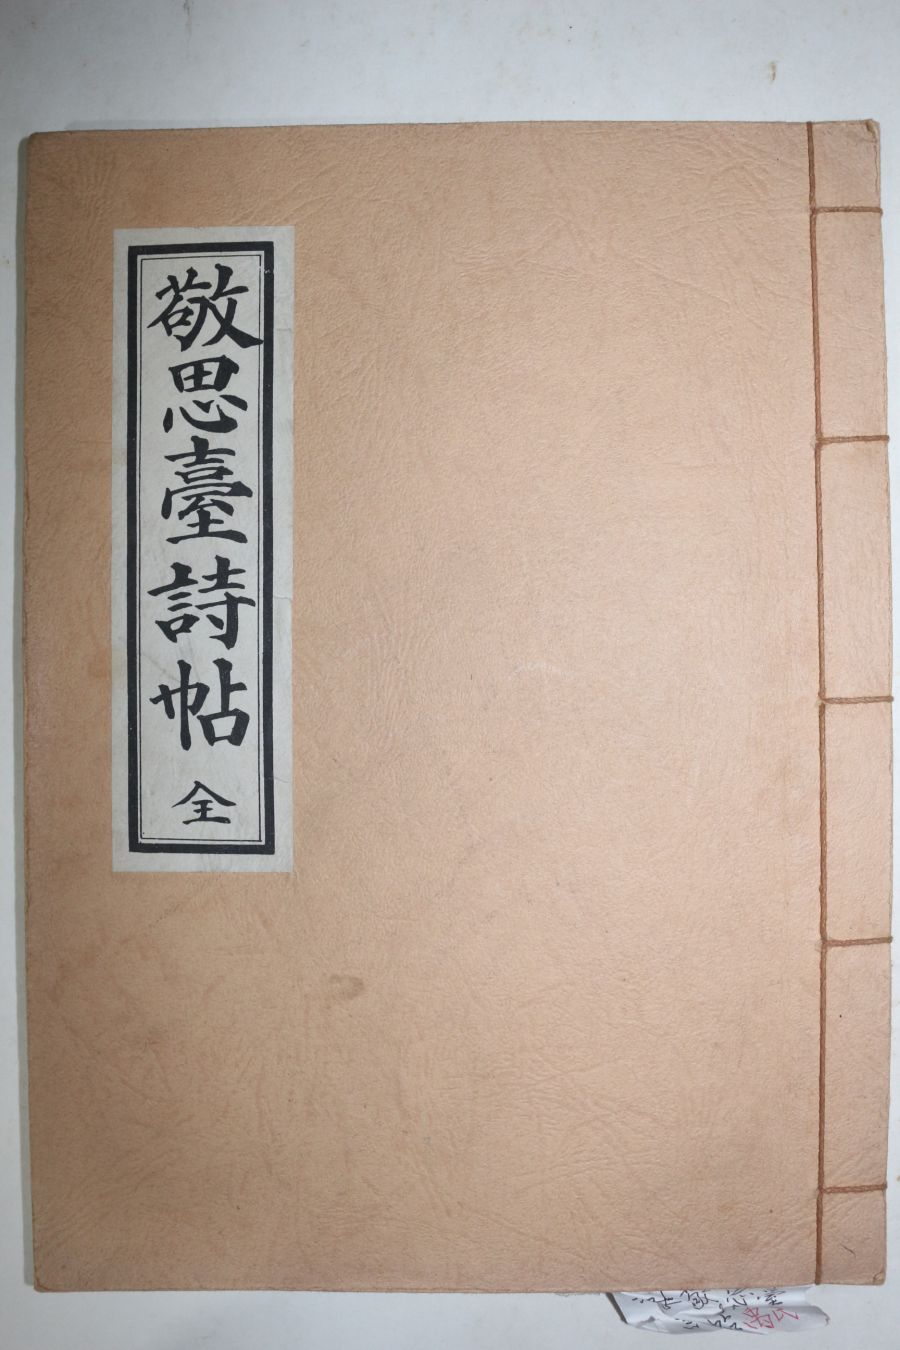 敬思臺詩帖 全